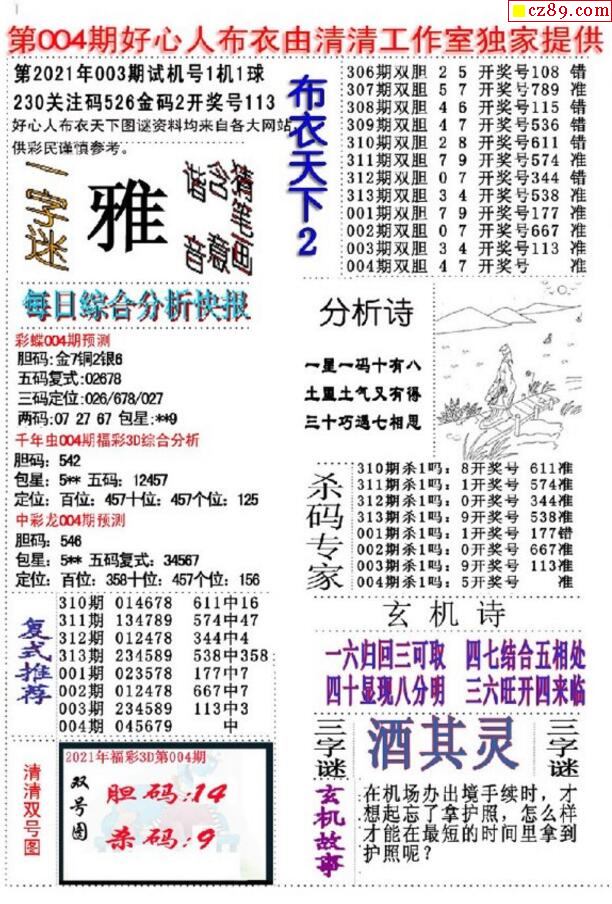 cz89.com
第004期好心人布衣由清清工作室独家提供
第2021年003期试机号1机1球
230关注码526金码2开奖号113
好心人布衣天下图谜资料均来自各大网站
供彩民谨慎参考。
一字迷
雅
谐音
含意
猜笔画
布衣天下2
306期双胆 2 5 开奖号108 错
307期双胆 5 7 开奖号789 准
308期双胆 4 6 开奖号115 错
309期双胆 4 7 开奖号536 错
310期双胆 2 8 开奖号611 错
311期双胆 7 9 开奖号574 准
312期双胆 0 7 开奖号344 错
313期双胆 3 4 开奖号538 准
001期双胆 7 9 开奖号177 准
002期双胆 0 7 开奖号667 准
003期双胆 3 4 开奖号113 准
004期双胆 4 7 开奖号 准
每日综合分析快报
彩蝶004期预测
胆码:金7铜2银6
五码复式:02678
三码定位:026/678/027
两码:07 27 67 包星:**9
千年虫004期福彩3D综合分析
胆码：542
包星：5** 五码：12457
定位：百位：457十位：457个位：125
中彩龙004期预测
胆码：546
包星：5** 五码复式：34567
定位：百位：358十位：457个位：156
分析诗
一星一码十有八
土盟土气又有得
三十巧遇七相思
杀码专家
310期杀1吗：8开奖号 611准
311期杀1吗：1开奖号 574准
312期杀1吗：0开奖号 344准
313期杀1吗：9开奖号 538准
001期杀1吗：1开奖号 177错
002期杀1吗：0开奖号 667准
003期杀1吗：9开奖号 113准
004期杀1吗：5开奖号 准
复式推荐
310期 014678 611中16
311期 134789 574中47
312期 012478 344中4
313期 234589 538中358
001期 023578 177中7
002期 012478 667中7
003期 234589 113中3
004期 045679 中
玄机诗
一六归回三可取 四七结合五相处
四十显现八分明 三六旺开四来临
三字谜
酒其灵
三字谜
清清双号图
2021年福彩3D第004期
双号图
胆码:14
杀码:9
玄机故事
在机场办出境手续时，才
想起忘了拿护照，怎么样
才能在最短的时间里拿到
护照呢?